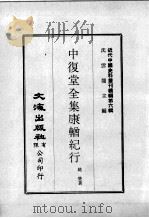 近代中國史料叢刊續編第六輯
沈雲龍主編
中復堂全集康輶紀行
姚瑩著
文海出版社有限公司印行